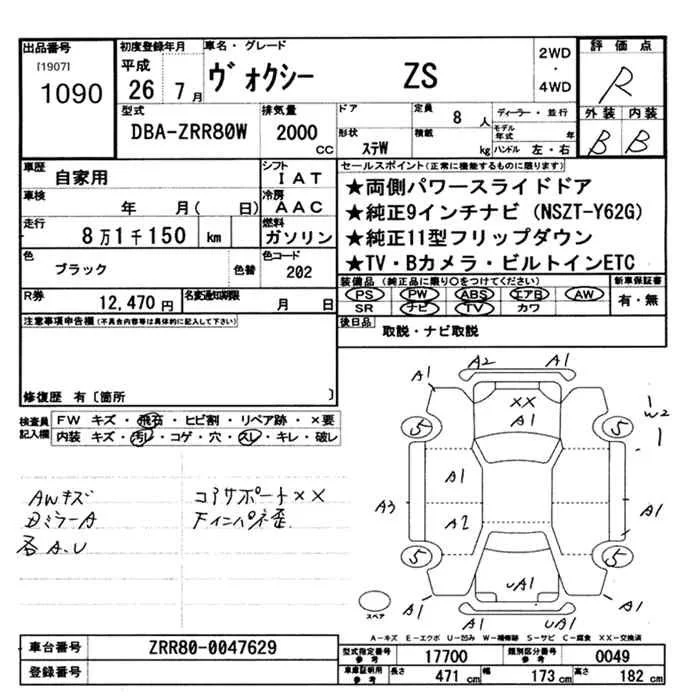 出品番号
[1907]
1090
初度登録年月
平成
26年 7月
車名・グレード
ヴォクシー ZS
2WD
・
4WD
評価点
R
外装 内装
B B
型式
DBA-ZRR80W
排気量
2000 CC
ドア
形状
ステW
定員 8 人
積載 kg
ディーラー・並行
モデル年式 年
ハンドル 左・右
車歴
自家用
シフト
IAT
車検
年 月( 日)
冷房
AAC
走行
8万1千150 km
燃料
ガソリン
色
ブラック
色替
色コード
202
R券
12,470円
名変通知期限
月 日
セールスポイント(正常に機能するものに限ります)
★両側パワースライドドア
★純正9インチナビ(NSZT-Y62G)
★純正11型フリップダウン
★TV・Bカメラ・ビルトインETC
装備品(純正品に限り○をつけてください)
PS PW ABS エアB AW
SR ナビ TV カワ
新車保証書
有・無
後日品
取説・ナビ取説
注意事項申告欄(不具合内容等は具体的に記入して下さい)
修復歴 有〔箇所 〕
検査員記入欄
FW キズ・飛石・ヒビ割・リペア跡・×要
内装 キズ・汚レ・コゲ・穴・スレ・キレ・破レ
AWキズ
Dミラー A
各A.U
コアサポート××
Fインパネ歪
A1 A2 A1
XX
A1
W2
5 5
A1
A3 A2 A1
5 5
UA1
A1 UA1 A1
スペア
A-キズ E-エクボ U-凹み W-補修跡 S-サビ C-腐食 XX-交換済
車台番号
ZRR80-0047629
登録番号
型式指定番号 参考
17700
類別区分番号 参考
0049
車庫証明用 参考
長さ 471 cm 幅 173 cm 高さ 182 cm